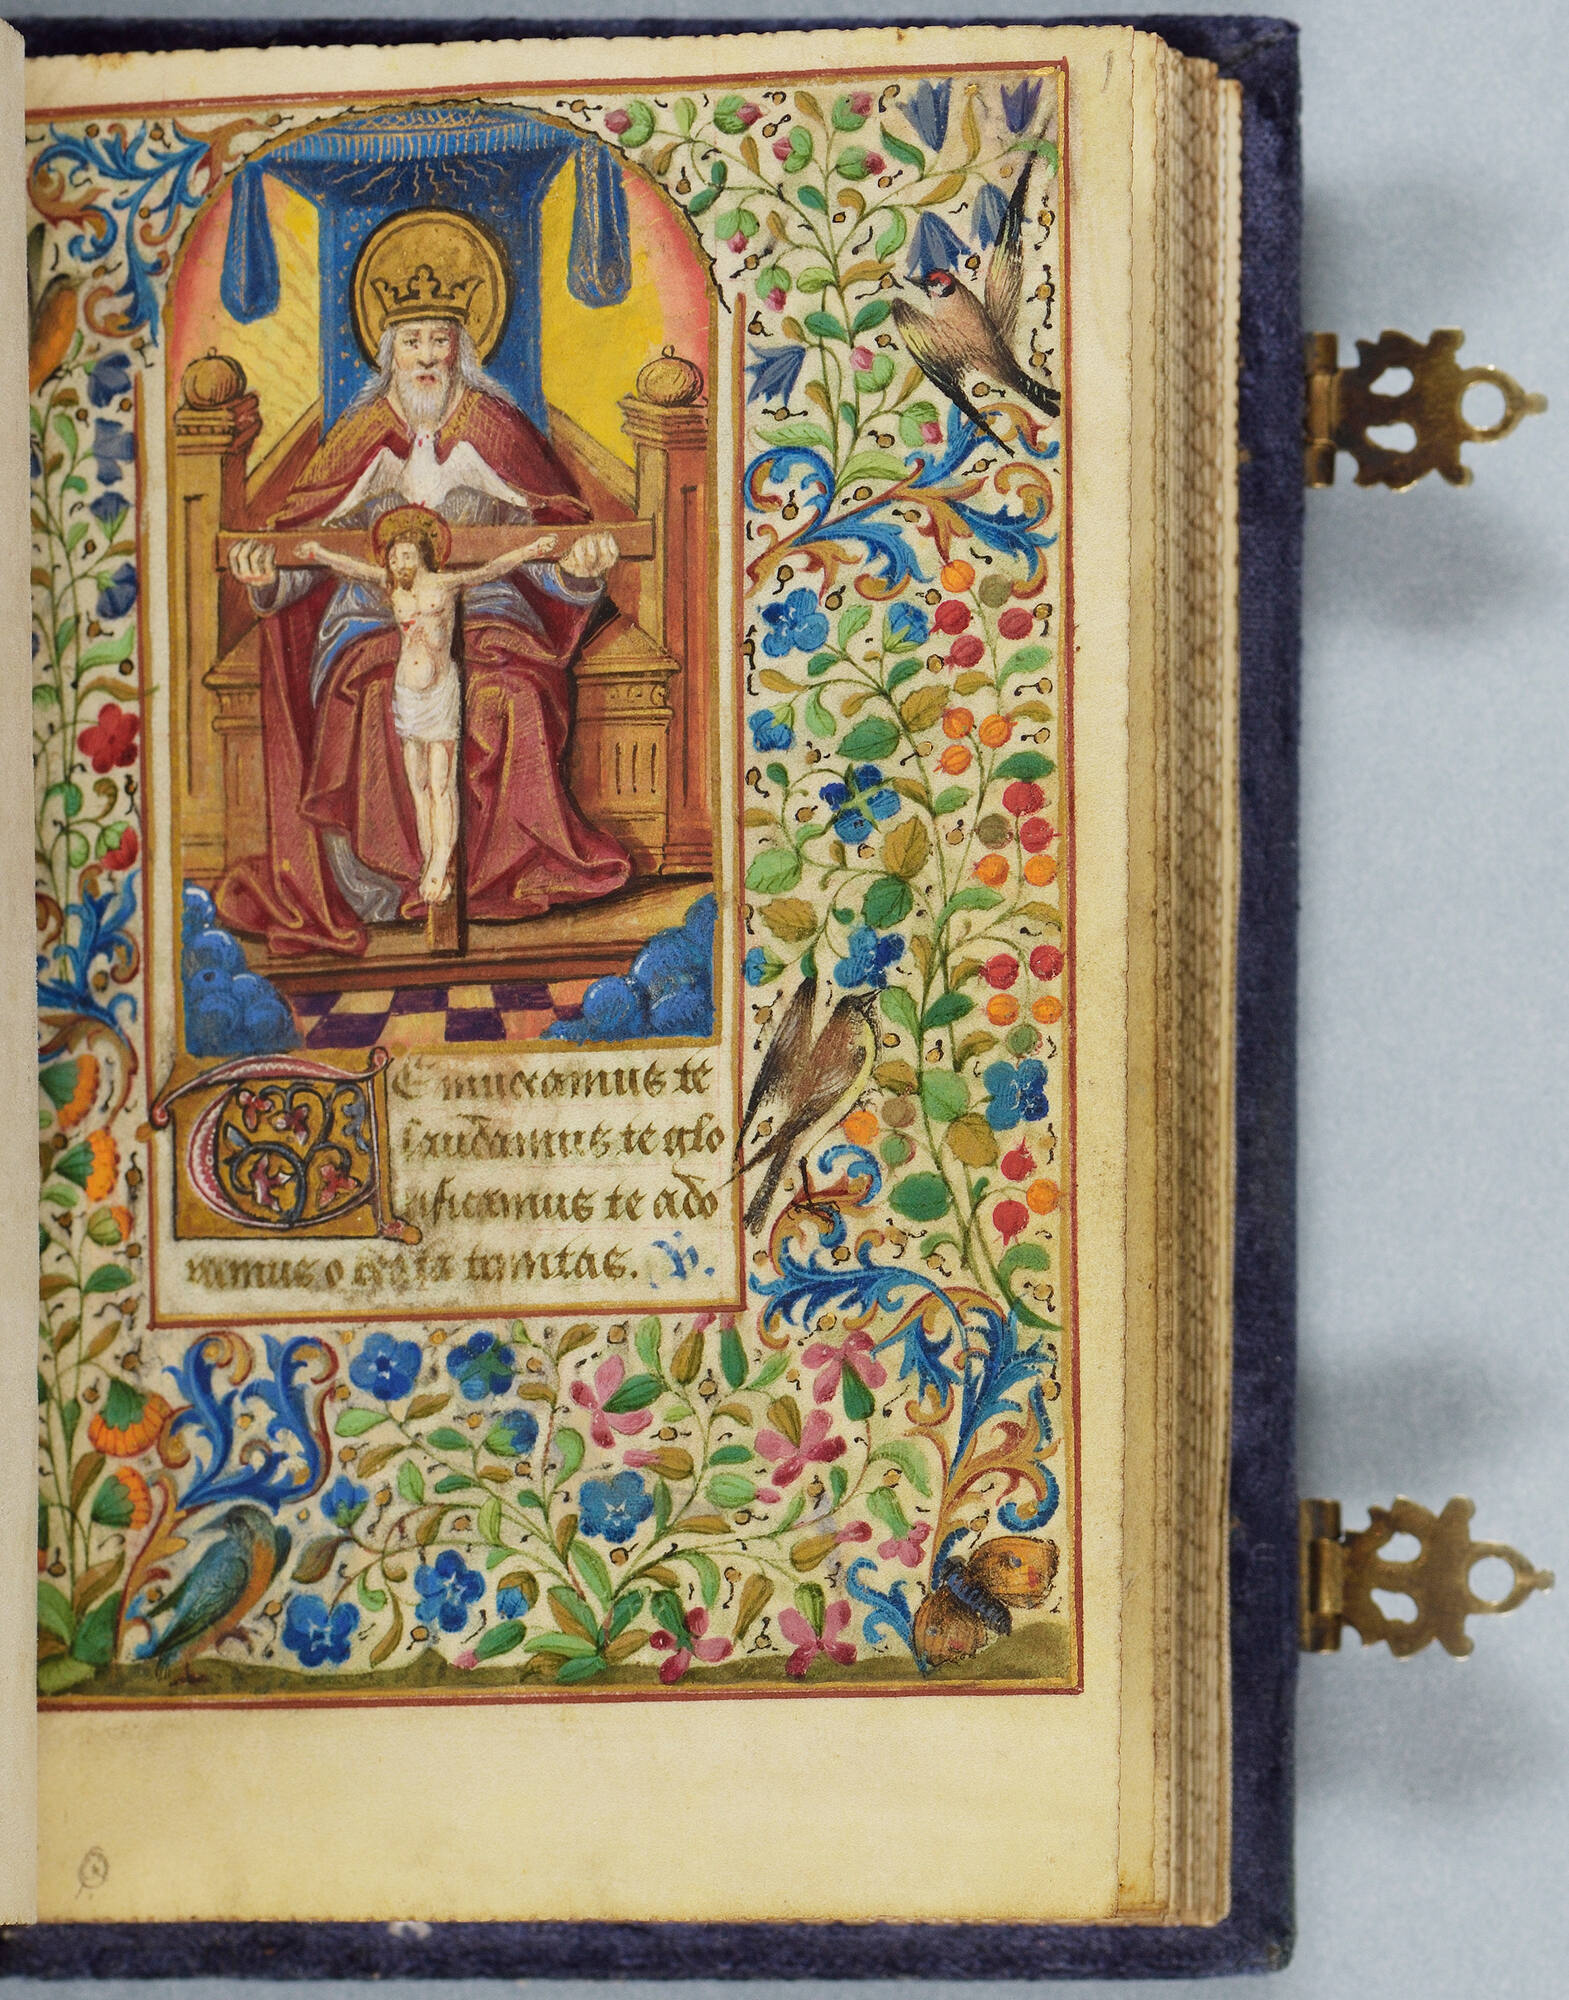 1
TE inuocamus te
laudamus te glo
rificamus te ado
ramus o beata trinitas. V.